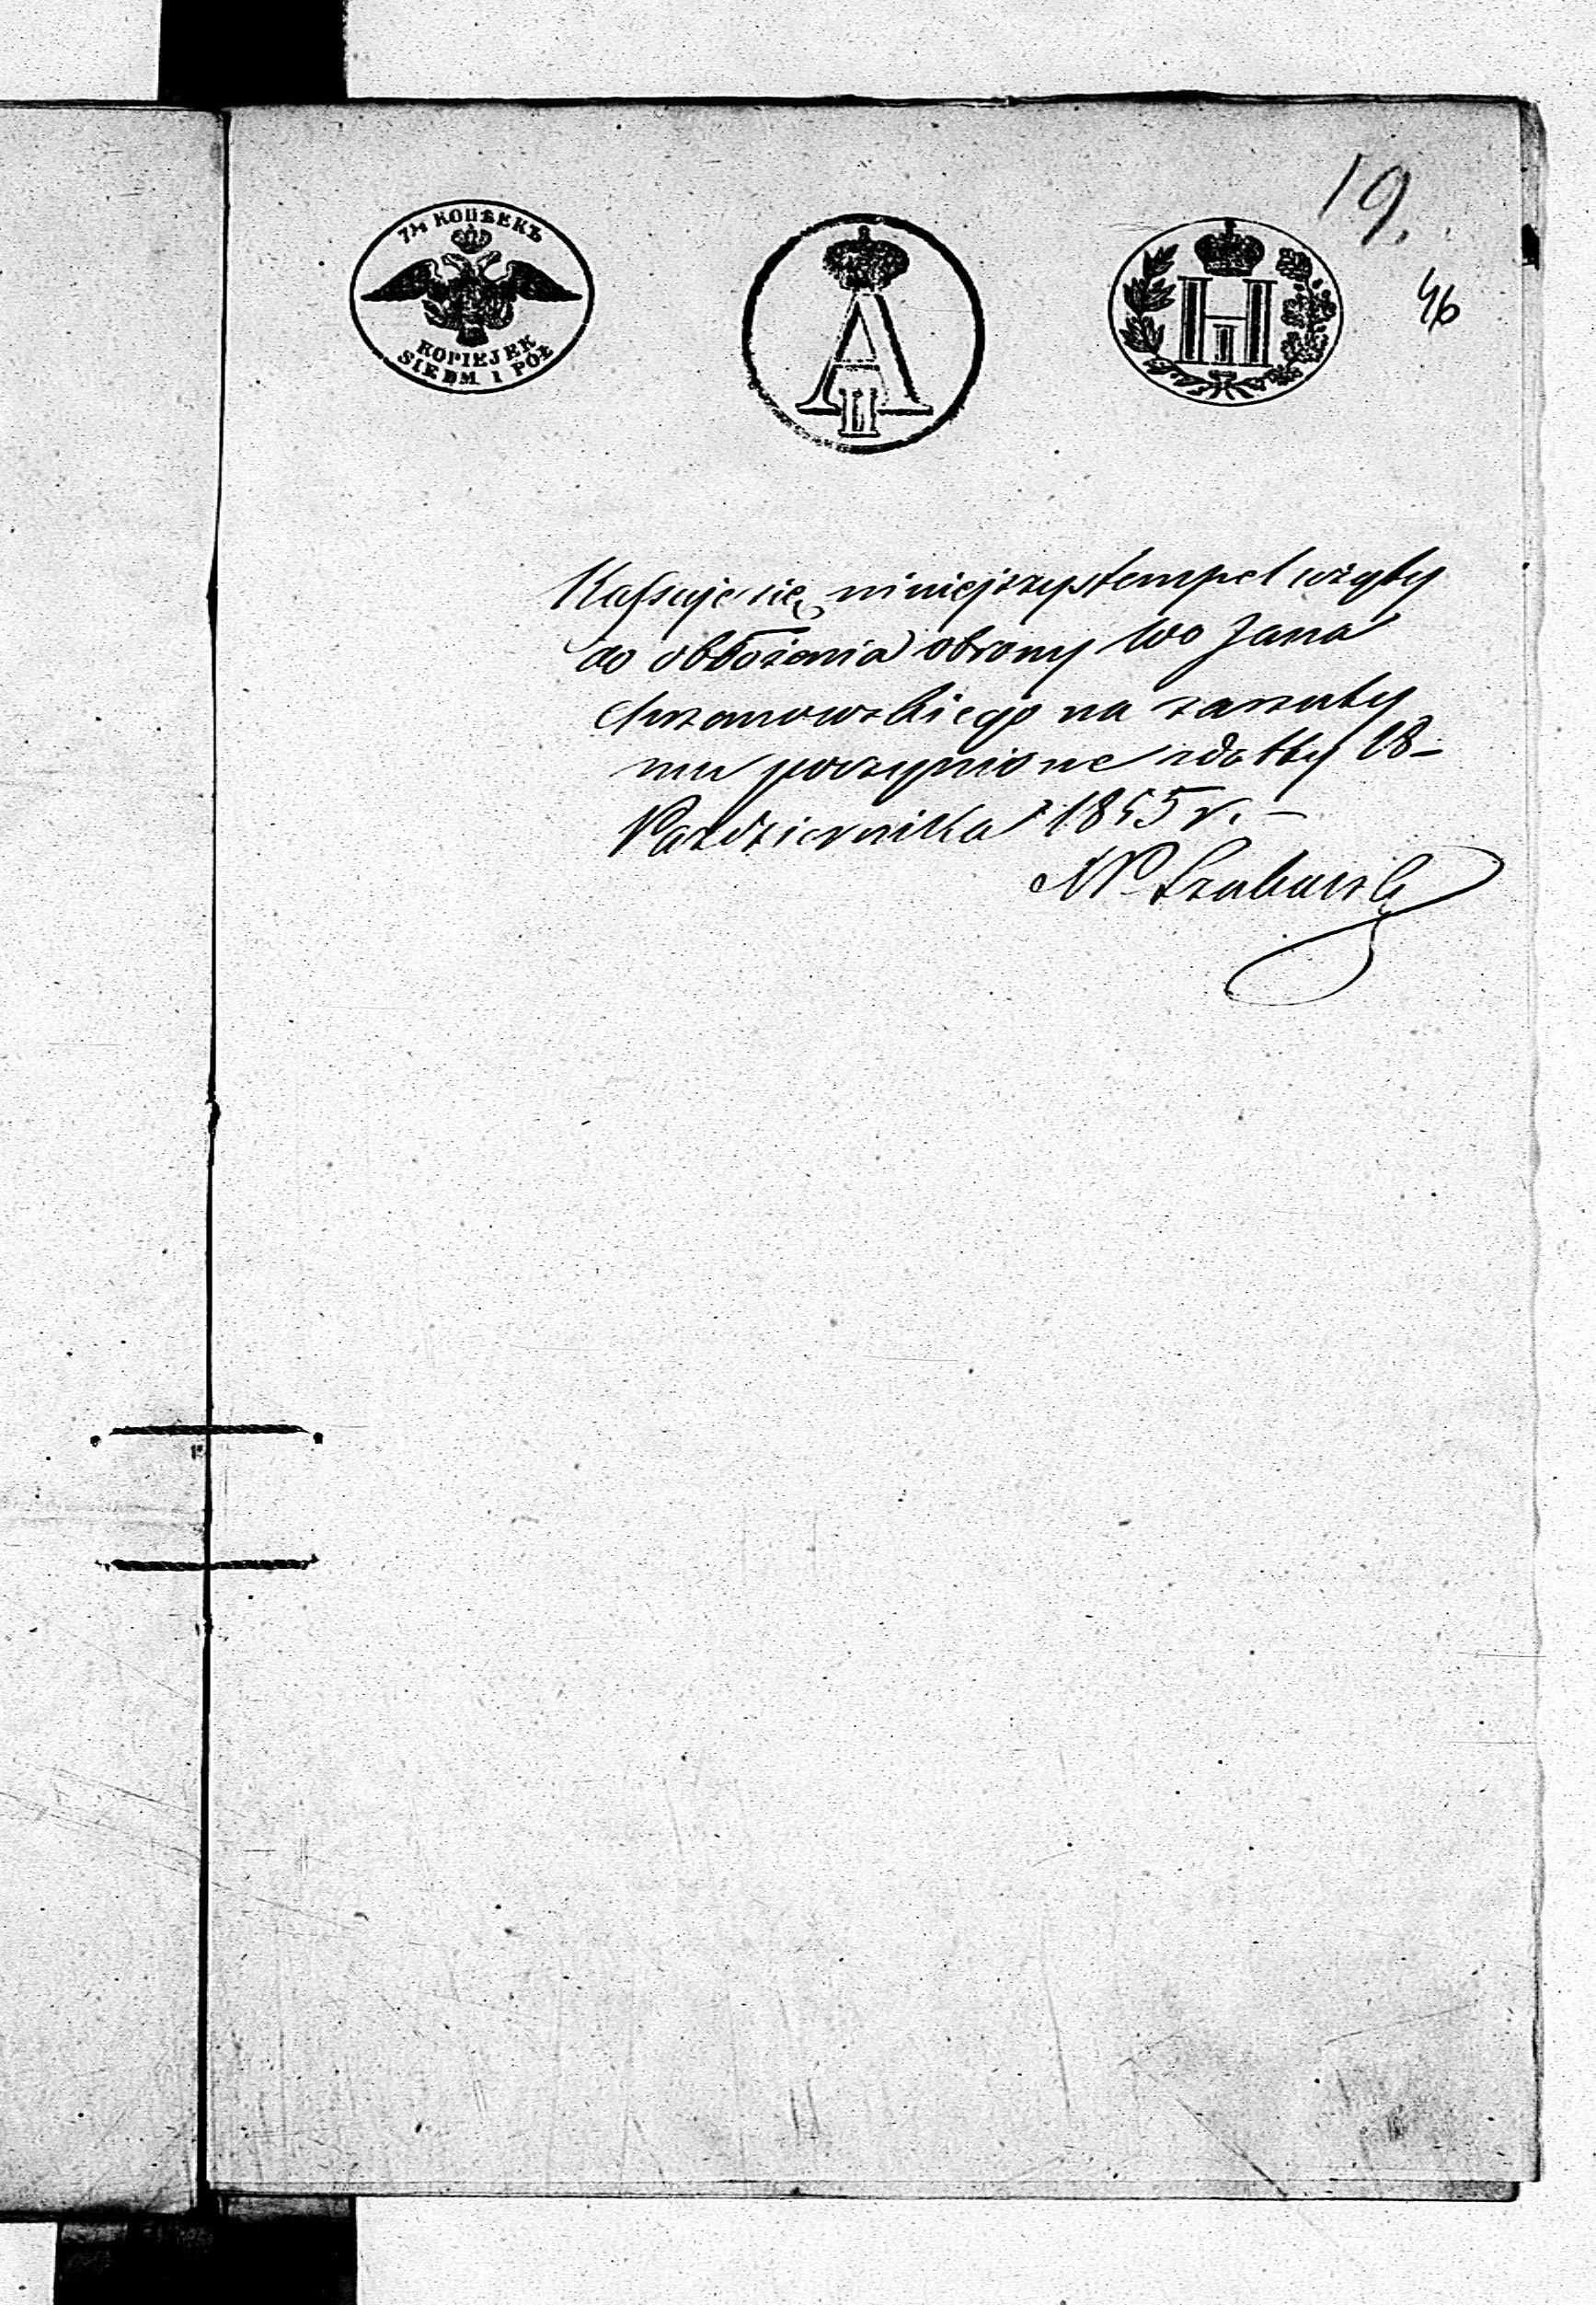 19.
46
7½ КОПѢЕКЪ
KOPIEJEK
SIEDM I PÓŁ
A II
Н I
Kassuje się niniejszy stempel użyty
do obłożenia obrony Wo Jana
na zarzuty
mu poczynione z daty 18
Października 1855 r. —